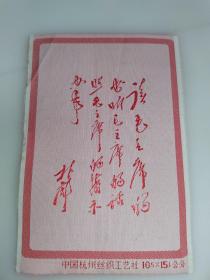 读毛主席的
书听毛主席的话
照毛主席的指示
办事
林彪
中国杭州丝织工艺社 10.5×15.1公分